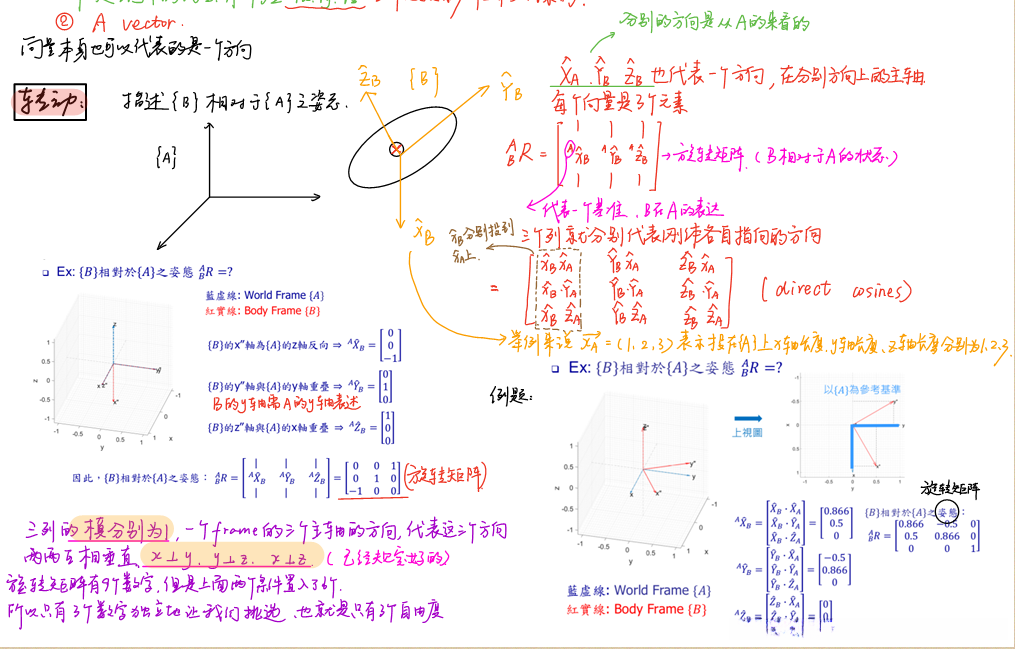 ② A vector.
向量本身也可以代表的是一个方向
分别的方向是从A的来看的
转动:
描述{B}相对于{A}之姿态.
{A}
Ẑ_B {B} Ŷ_B
X̂_B
X̂_A Ŷ_B Ẑ_B 也代表一个方向,在分别方向上的主轴
每个向量是3个元素
^A_B R = [ | | | ; ^A X̂_B ^A Ŷ_B ^A Ẑ_B ; | | | ] → 旋转矩阵.(B相对于A的状态)
代表一个基准、B在A的表达
三个列就分别代表刚体各自指向的方向
X̂_B分别投到
X̂_A上.
= [ X̂_B X̂_A Ŷ_B X̂_A Ẑ_B X̂_A
X̂_B·Ŷ_A Ŷ_B·Ŷ_A Ẑ_B·Ŷ_A
X̂_B Ẑ_A Ŷ_B Ẑ_A Ẑ_B Ẑ_A ] (direct cosines)
举例来说 X_A = (1,2,3) 表示投在{A}上x轴长度,y轴长度、z轴长度分别为1,2,3.
Ex: {B}相對於{A}之姿態 ^A_B R =?
藍虛線: World Frame {A}
紅實線: Body Frame {B}
{B}的x″軸為{A}的z軸反向 ⇒ ^A X̂_B = [0 0 −1]
{B}的y″軸與{A}的y軸重疊 ⇒ ^A Ŷ_B = [0 1 0]
B的y轴需A的y轴表述
{B}的z″軸與{A}的x軸重疊 ⇒ ^A Ẑ_B = [1 0 0]
因此,{B}相對於{A}之姿態: ^A_B R = [ | | | ; ^A X̂_B ^A Ŷ_B ^A Ẑ_B ; | | | ] = [ 0 0 1 ; 0 1 0 ; −1 0 0 ] (旋转矩阵)
三列的模分别为1,一个frame的三个主轴的方向,代表这三个方向
两两互相垂直、x⊥y、y⊥z、x⊥z (已经规定好的)
旋转矩阵有9个数字,但是上面两个条件置入了6个.
所以只有3个数字独立地让我们挑选、也就是只有3个自由度
例题:
Ex: {B}相對於{A}之姿態 ^A_B R =?
上視圖
以{A}為參考基準
旋转矩阵
^A X̂_B = [ X̂_B · X̂_A ; X̂_B · Ŷ_A ; X̂_B · Ẑ_A ] = [ 0.866 ; 0.5 ; 0 ]
{B}相對於{A}之姿態:
^A_B R = [ 0.866 −0.5 0 ; 0.5 0.866 0 ; 0 0 1 ]
^A Ŷ_B = [ Ŷ_B · X̂_A ; Ŷ_B · Ŷ_A ; Ŷ_B · Ẑ_A ] = [ −0.5 ; 0.866 ; 0 ]
藍虛線: World Frame {A}
紅實線: Body Frame {B}